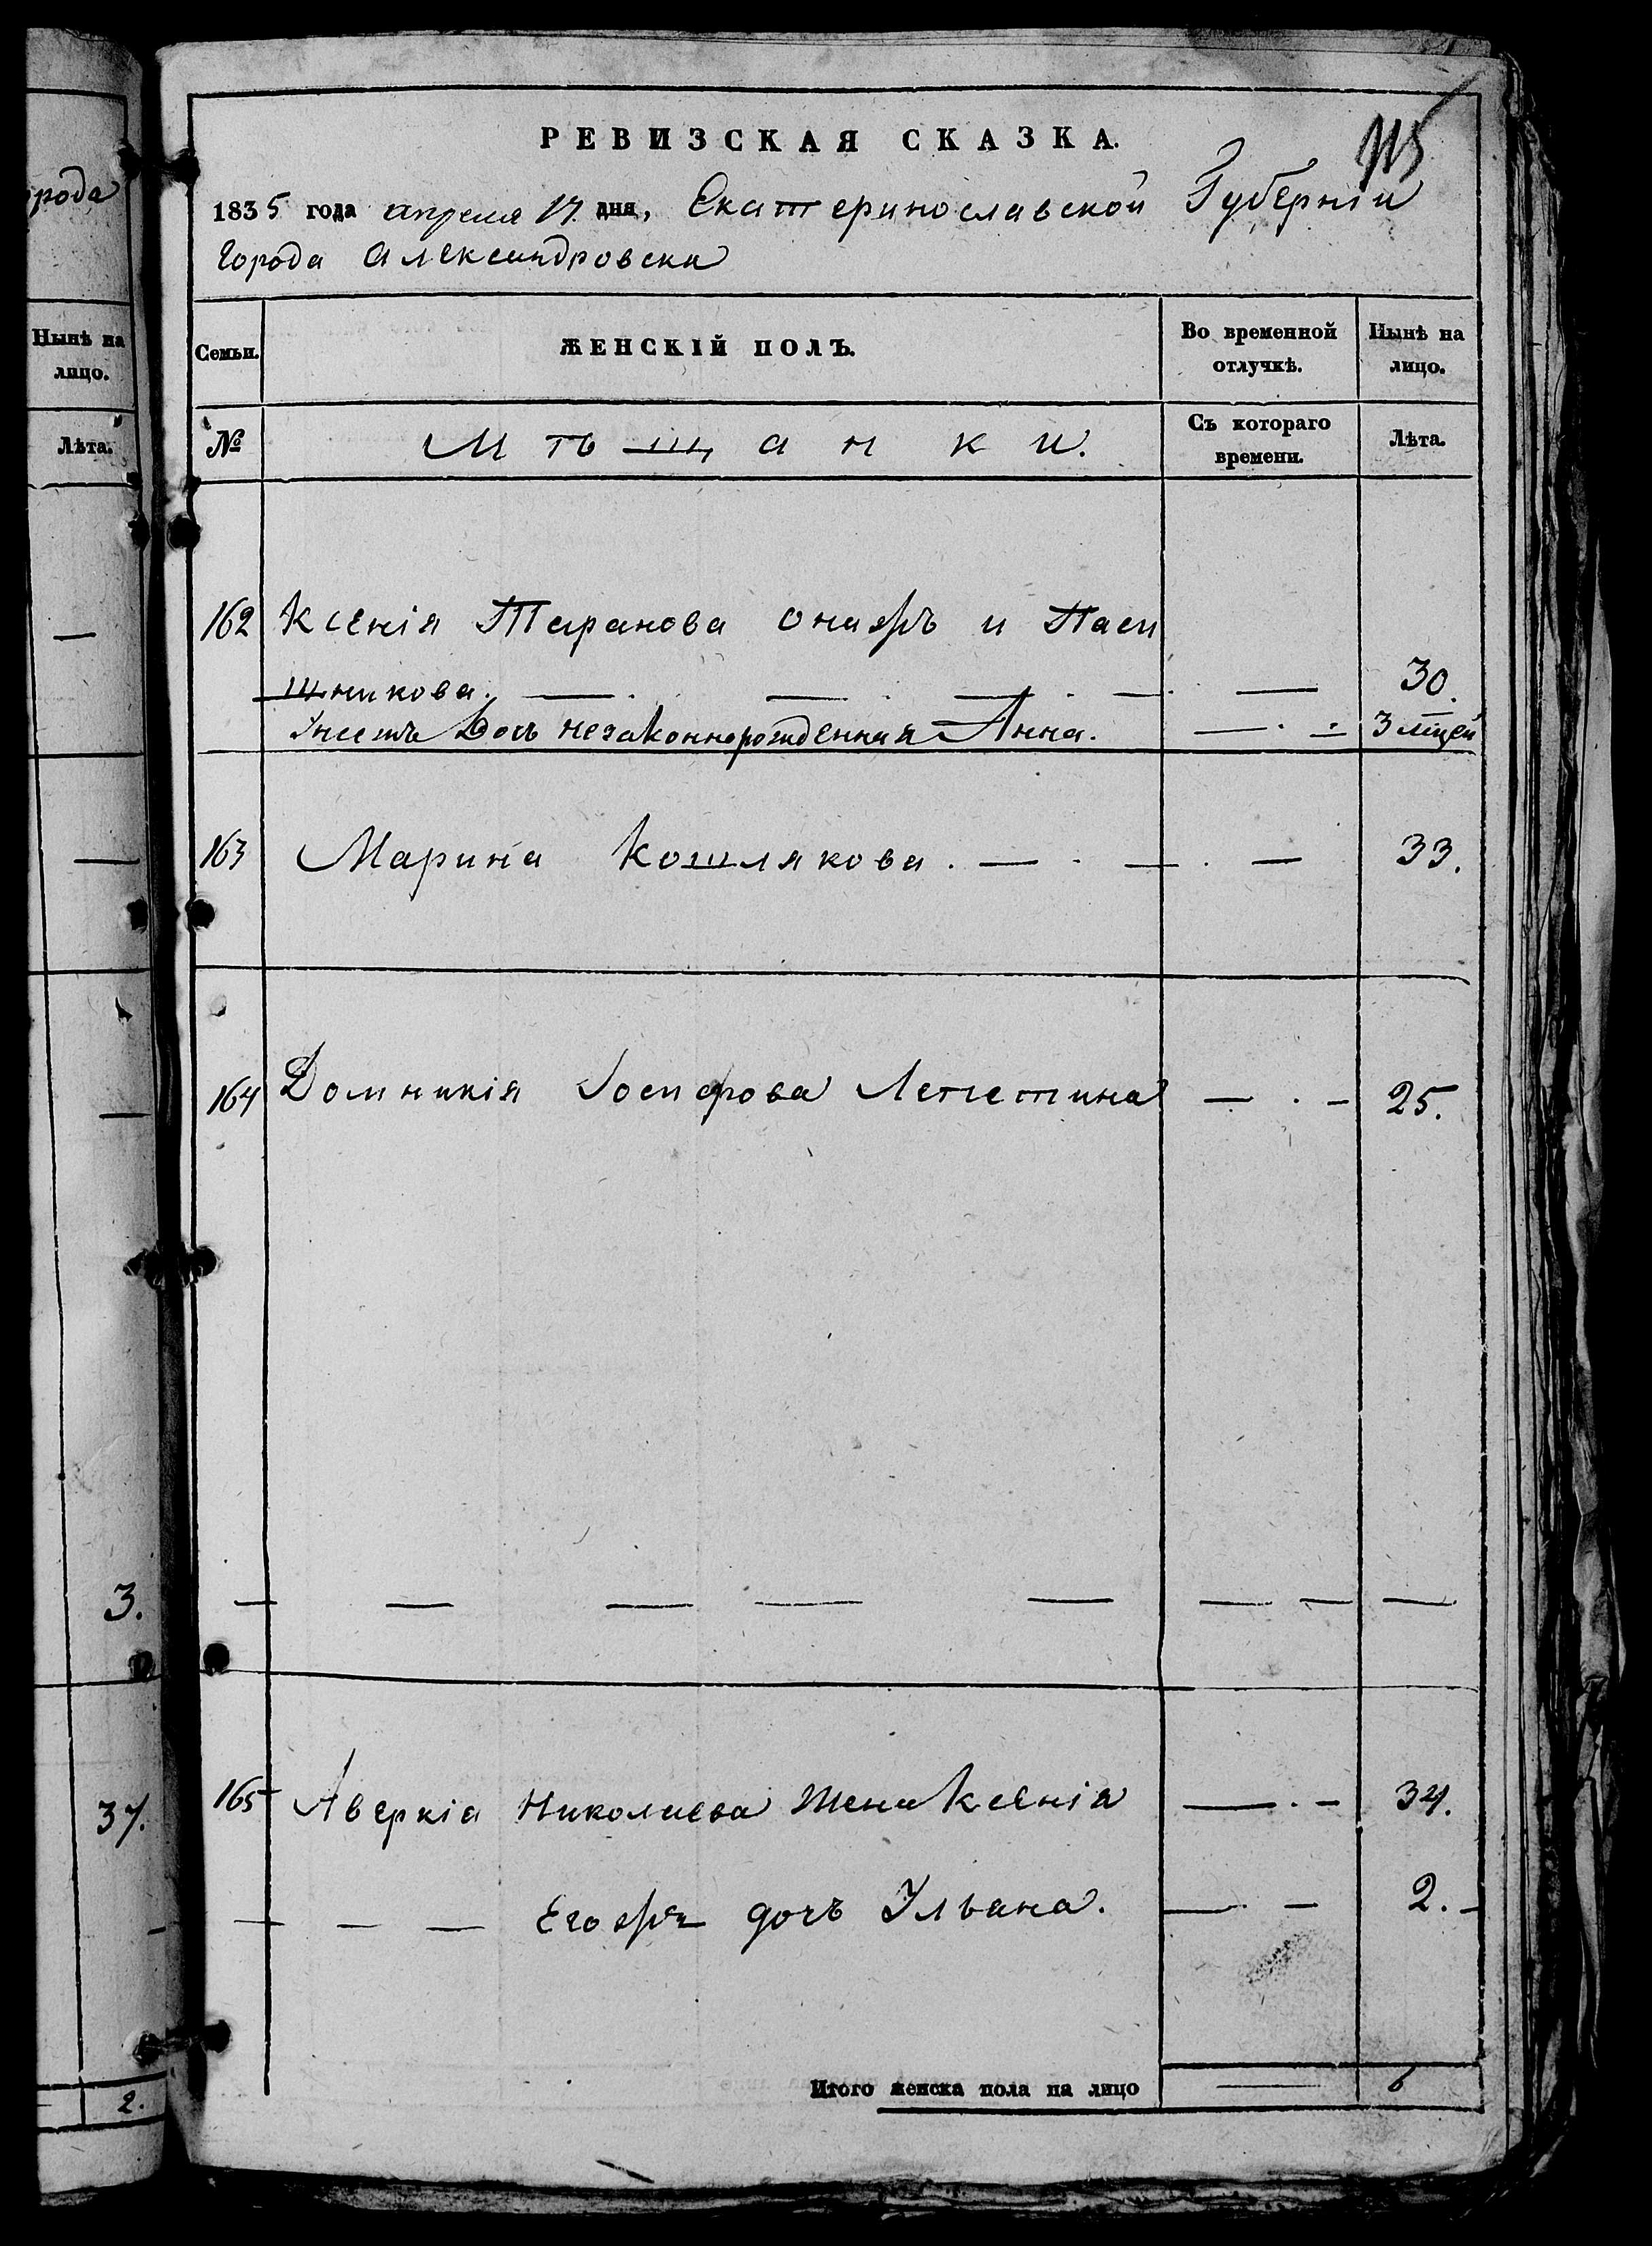 рода
Нынѣ на
лицо.
Лѣта.
3.
37.
2.
РЕВИЗСКАЯ СКАЗКА.
115
1835 года апреля 17 дня, Екатеринославской Губерніи
Города Александровска
Семьи.
ЖЕНСКІЙ ПОЛЪ.
Во временной
отлучкѣ.
Нынѣ на
лицо.
№
Мѣщанки.
Съ котораго
времени.
Лѣта.
162 Ксенія Таранова онажъ и Паси
шникова. 30.
Дочь незаконнорожденная Анна. 3
163 Марина Кошлякова. 33.
164 Домникія Іосифова 25.
165 Аверкія Николаева жена Ксенія 34.
Егожъ дочь Ульяна. 2.
Итого женска пола на лицо 6